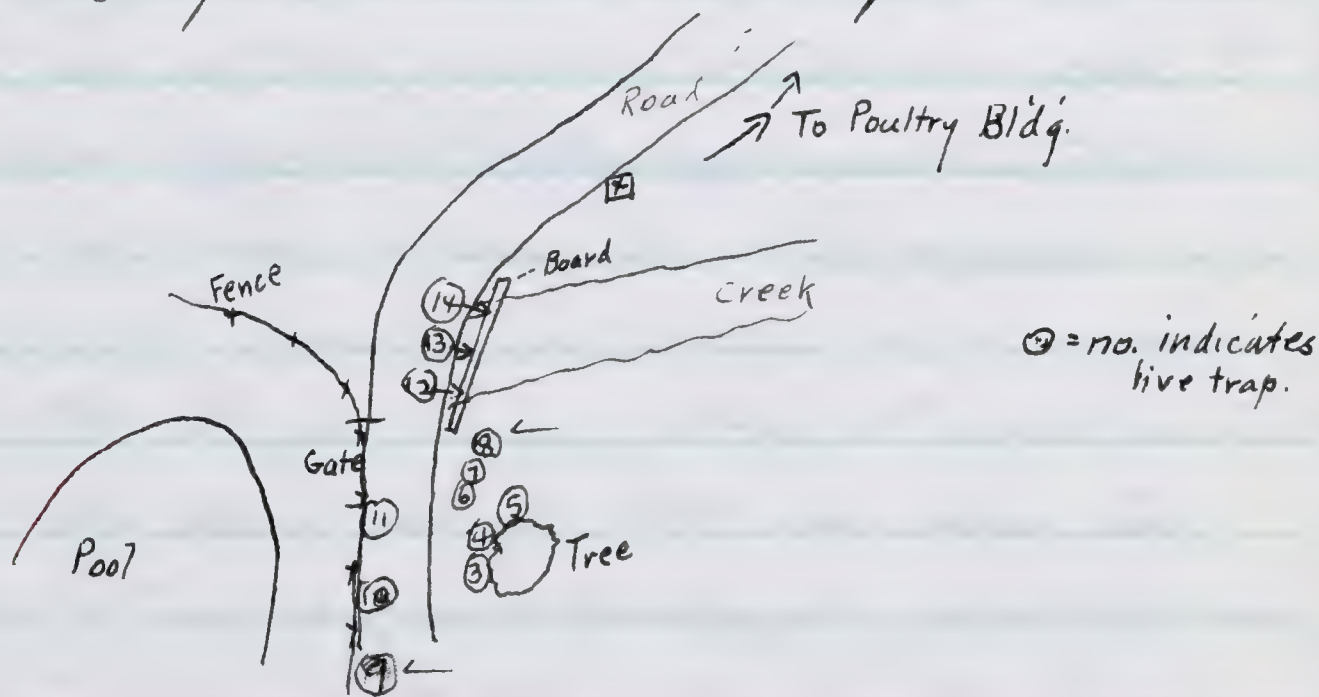 Road
To Poultry Bldg.
Board
Fence
Creek
14
13
12
= no. indicates
live trap.
8
Gate
7
6
5
11
4
Tree
Pool
3
10
9